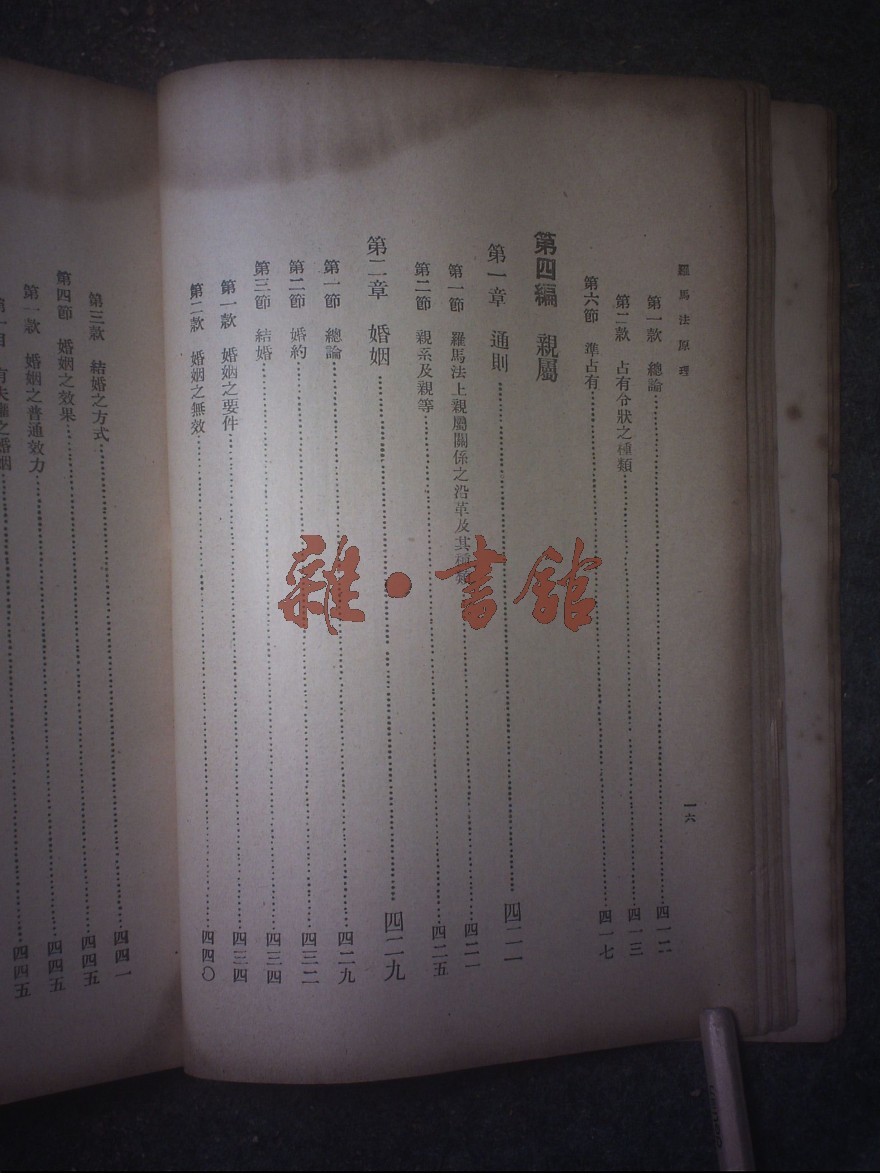 羅馬法原理
一六
第一款　總論…………四一二
第二款　占有令狀之種類…………四一三
第六節　準占有…………四一七
第四編　親屬
第一章　通則…………四二一
第一節　羅馬法上親屬關係之沿革及其種類…………四二一
第二節　親系及親等…………四二五
第二章　婚姻…………四二九
第一節　總論…………四二九
第二節　婚約…………四三二
第三節　結婚…………四三四
第一款　婚姻之要件…………四三四
第二款　婚姻之無效…………四四〇
第三款　結婚之方式…………四四一
第四節　婚姻之效果…………四四五
第一款　婚姻之普通效力…………四四五
第一目　有夫權之婚姻…………四四五
雜·書館